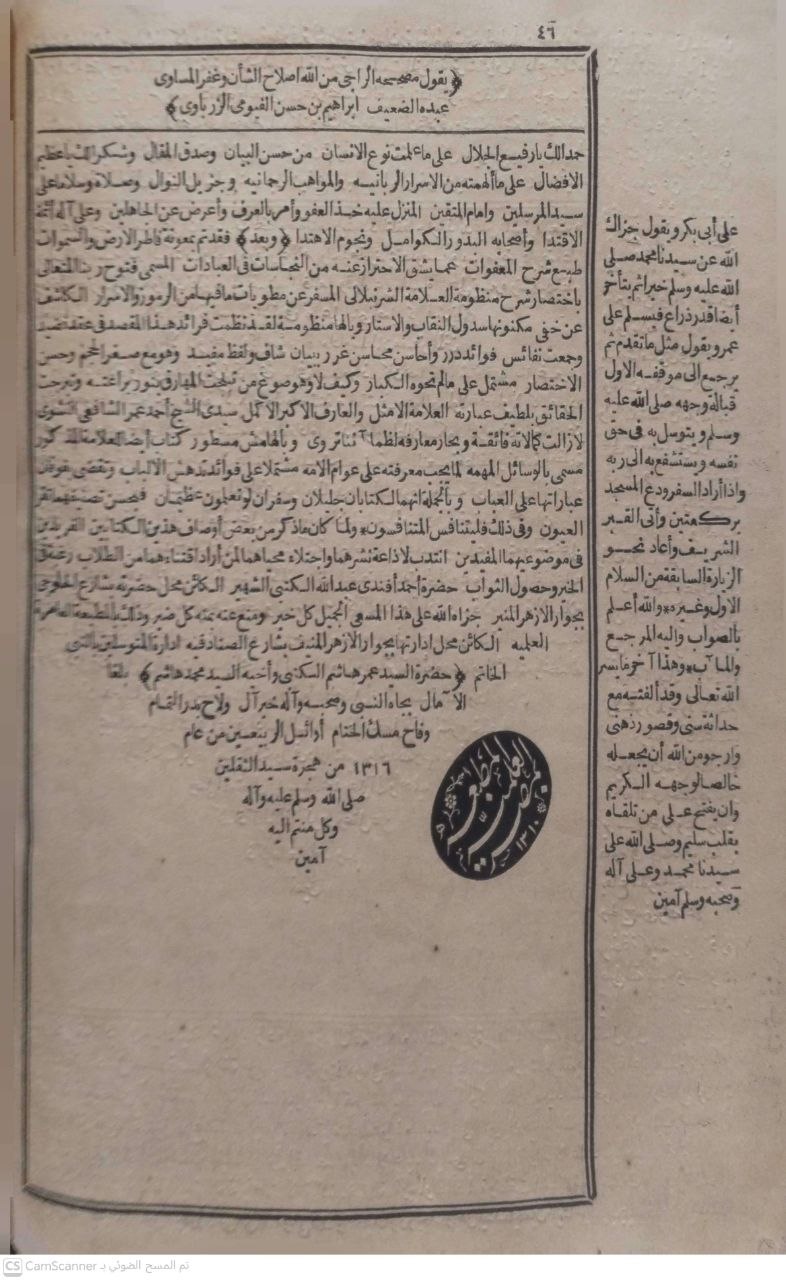 ٤٦
﴿يقول مصححه الراجي من الله اصلاح الشأن وغفر المساوى
عبده الضعيف ابراهيم بن حسن الفيومى الزرباوى﴾
حمدا لك يا رفيع الجلال على ما علمت نوع الانسان من حسن البيان وصدق المقال وشكرا لك يا عظيم
الافضال على ما ألهمته من الاسرار الربانيه والمواهب الرحمانيه وجزيل النوال وصلاة وسلاما على
سيد المرسلين وامام المتقين المنزل عليه خذ العفو وأمر بالعرف وأعرض عن الجاهلين وعلى آله أئمة
الاقتدا وأصحابه البدور الكوامل ونجوم الاهتدا ﴿وبعد﴾ فقد تم بمعونة فاطر الارض والسموات
طبع شرح المعفوات عما يشق الاحتراز عنه من النجاسات فى العبادات المسمى فتوح ربنا المتعالى
باختصار شرح منظومة العلامة الشرنبلالى المسفر عن مطويات ما فيها من الرموز والاسرار الكاشف
عن خفى مكنونها سدول النقاب والاستار ويالها منظومة لقد نظمت فرائد هذا المقصد فى عقد نضيد
وجمعت نفائس فوائد درر وأحاسن محاسن غرر ببيان شاف ولفظ مفيد وهو مع صغر الحجم وحسن
الاختصار مشتمل على مالم تحوه الكبار وكيف لا وهو صوغ من تبلجت المهارق بنور براعته وتبرجت
الحقائق بلطيف عبارته العلامة الامثل والعارف الاكبر الاكمل سيدى الشيخ أحمد عمر الشافعى النشوى
لازالت كمالاته فائقة وبحار معارفه لظمآننا تروى وبالهامش مسطور كتاب أيضا للعلامة المذكور
مسمى بالوسائل المهمه لما يجب معرفته على عوام الامه مشتملا على فوائد تدهش الالباب وتقضى بتفوق
عباراتها على العباب وبالجملة انهما لكتابان جليلان وسفران لو تعلمون عظيمان فبحسن تصنيفهما تقر
العيون وفى ذلك فليتنافس المتنافسون ولما كان ما ذكر من بعض أوصاف هذين الكتابين الفريدين
فى موضوعيهما المفيدين انتدب لاذاعة نشرهما واجتلاء محياهما لمن أراد اقتناءهما من الطلاب رغبة فى
الخير وحصول الثواب حضرة أحمد أفندى عبدالله الكتبى الشهير الكائن محل حضرته بشارع الحلوجى
بجوار الازهر المنير جزاه الله على هذا المسعى الجميل كل خير ومنع عنه بمنه كل ضير وذلك بالمطبعة العامرة
العلميه الكائن محل ادارتها بجوار الازهر المنيف بشارع الصنادقيه ادارة المتوسلين بالنبى
الخاتم ﴿حضرة السيد عمر هاشم الكتبى وأخيه السيد محمد هاشم﴾ بلغا
الآمال بجاه النبى وصحبه وآله خير آل ولاح بدر التمام
وفاح مسك الختام أوائل الربيعين من عام
١٣١٦ من هجرة سيد الثقلين
صلى الله وسلم عليه وآله
وكل منتم اليه
آمين
المطبعة العلمية بمصر
١٣١٠
على أبى بكر ويقول جزاك
الله عن سيدنا محمد صلى
الله عليه وسلم خيرا ثم يتأخر
أيضا قدر ذراع فيسلم على
عمر ويقول مثل ما تقدم ثم
يرجع الى موقفه الاول
قبالة وجهه صلى الله عليه
وسلم ويتوسل به فى حق
نفسه ويستشفع به الى ربه
واذا أراد السفر ودع المسجد
بركعتين وأتى القبر
الشريف وأعاد نحو
الزيارة السابقة من السلام
الاول وغيره والله أعلم
بالصواب واليه المرجع
والمآب وهذا آخر ما يسر
الله تعالى وقد ألفته مع
حداثة سنى وقصور ذهنى
وارجو من الله أن يجعله
خالصا لوجهه الكريم
وان يفتح على من تلقاه
بقلب سليم وصلى الله على
سيدنا محمد وعلى آله
وصحبه وسلم آمين
CS CamScanner تم المسح الضوئي بـ